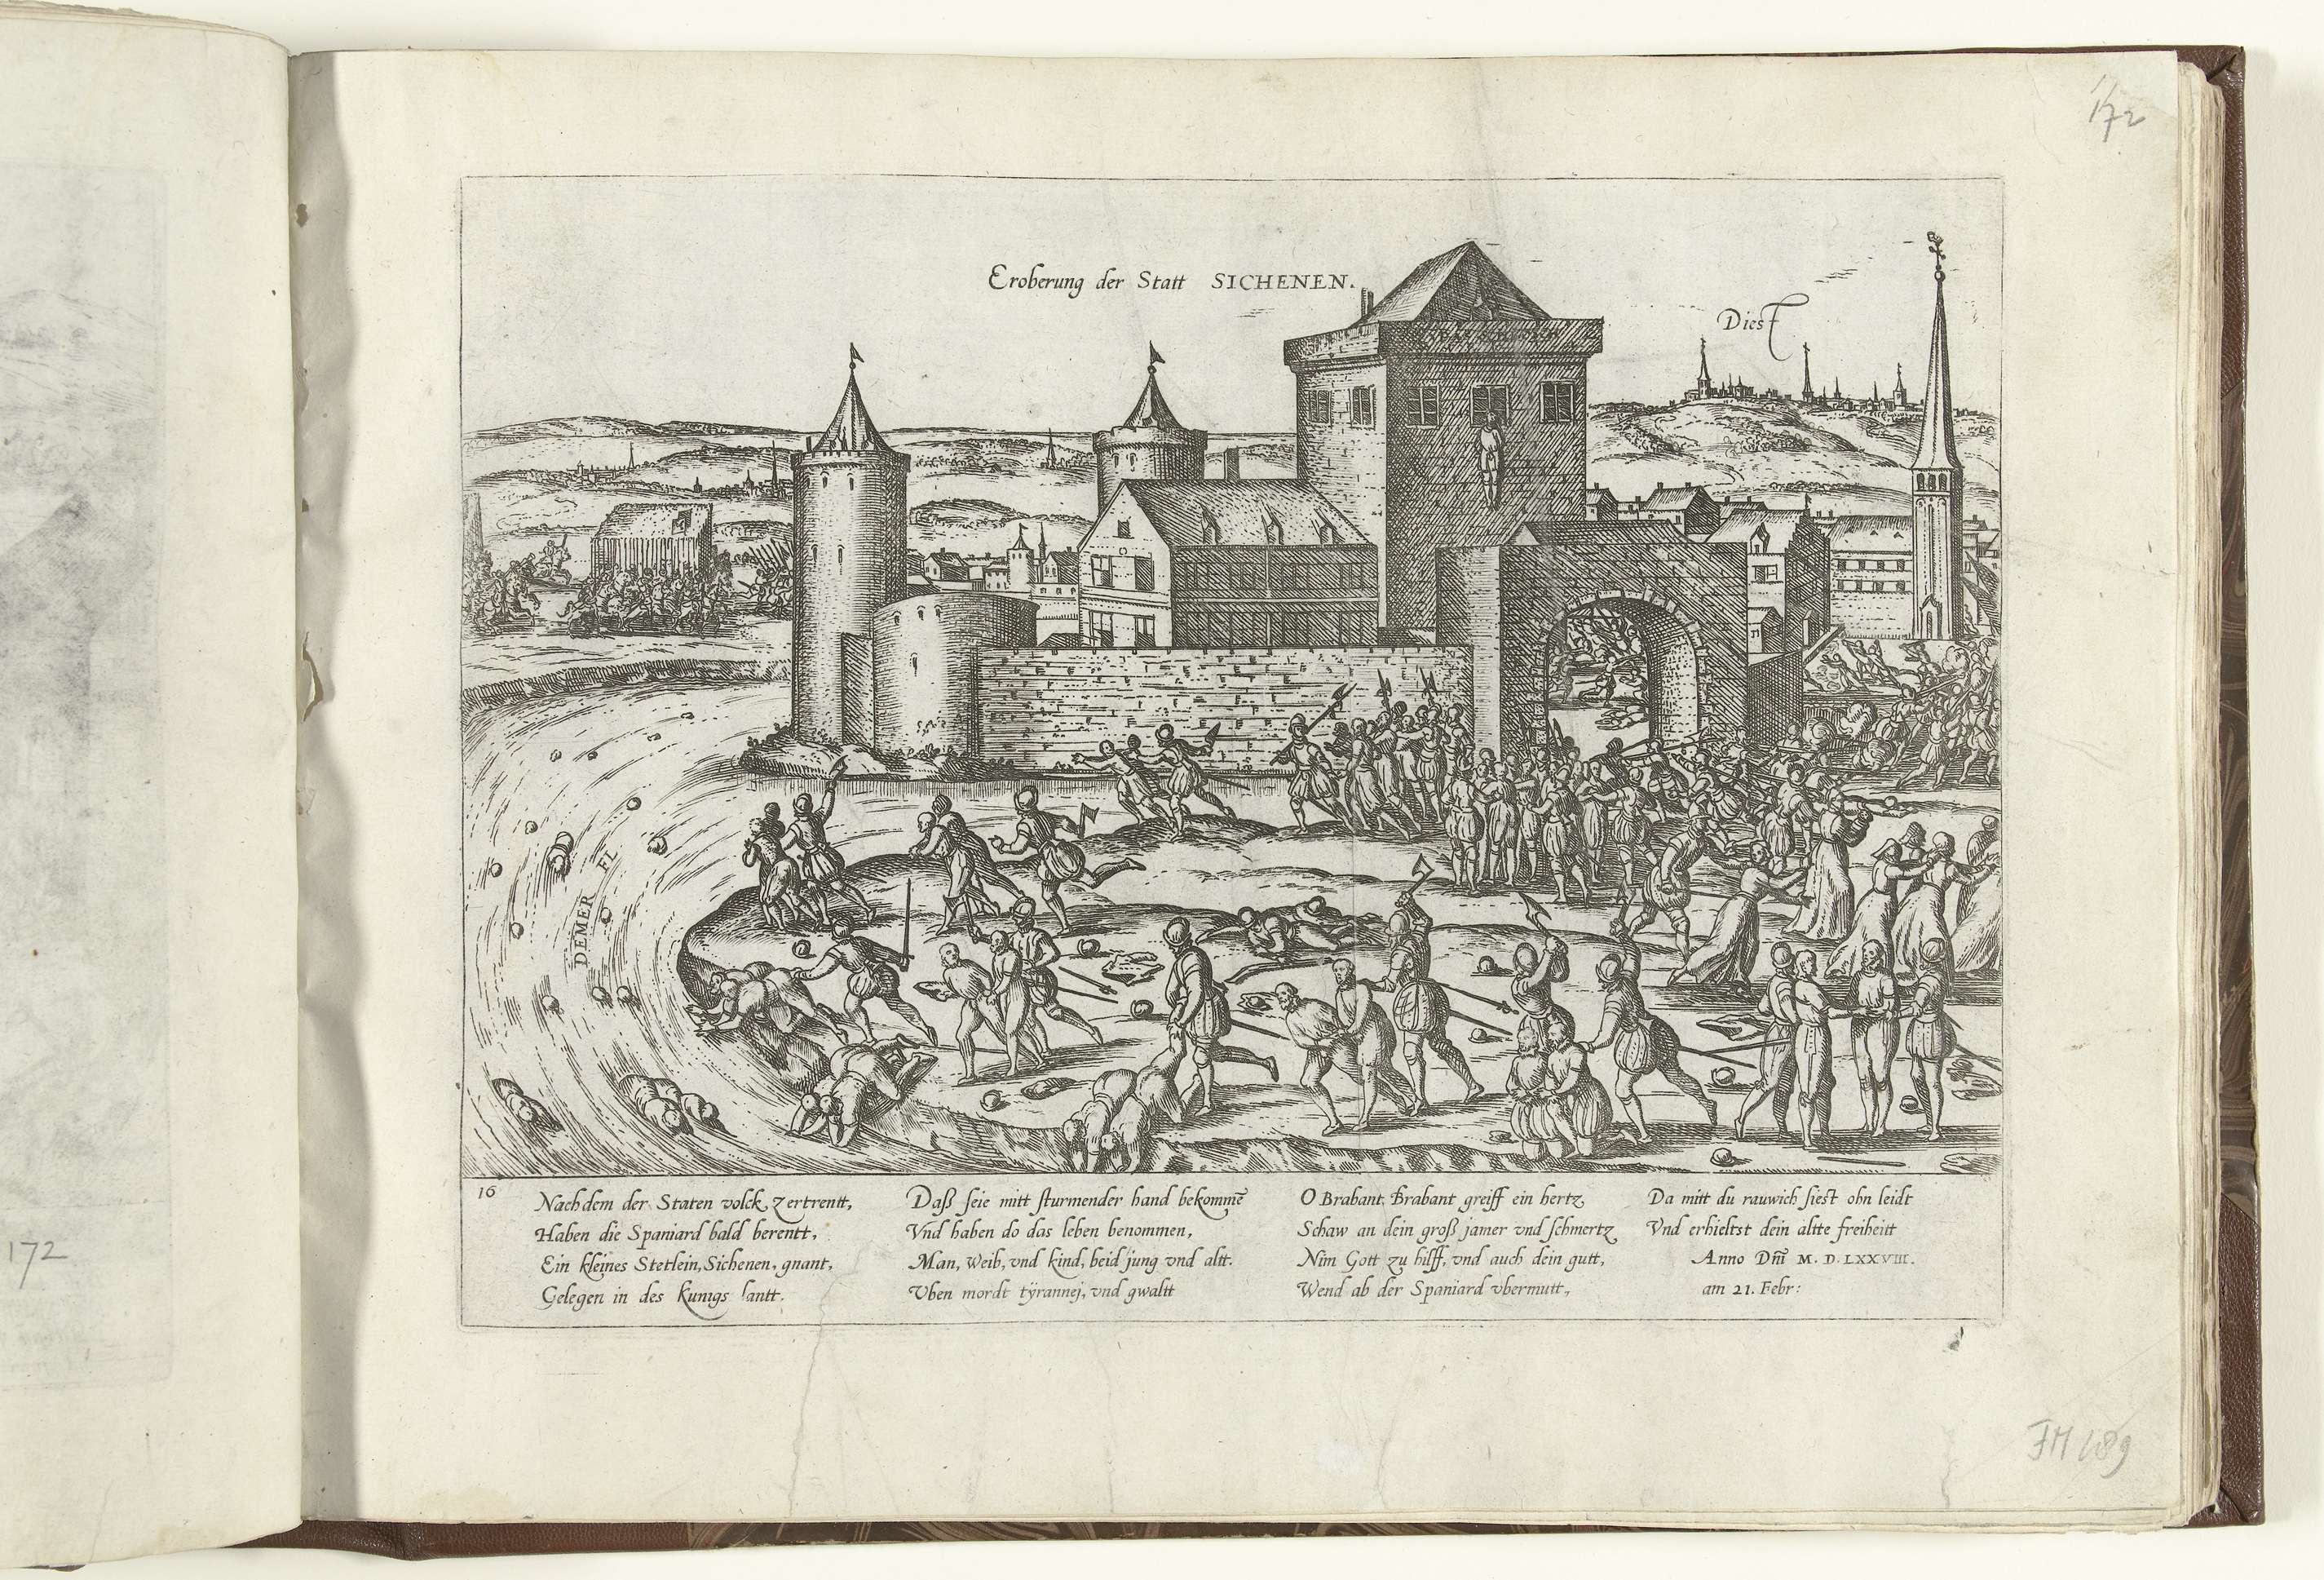 172
Eroberung der Statt SICHENEN.
Diest
DEMER FL
16
Nachdem der Staten volck, zertrentt,
Haben die Spaniard bald berentt,
Ein kleines Stetlein, Sichenen, gnant,
Gelegen in des Kunigs lantt.
Daß seie mitt sturmender hand bekommē
Vnd haben do das leben benommen,
Man, Weib, vnd kind, beid jung vnd altt.
Vben mordt tÿrannej, vnd gwaltt
O Brabant, Brabant greiff ein hertz,
Schaw an dein groß jamer vnd schmertz,
Nim Gott zu hilff, vnd auch dein gutt,
Wend ab der Spaniard vbermutt,
Da mitt du rauwich siest ohn leidt
Vnd erhieltst dein altte freiheitt
Anno Dni M. D. LXXVIII.
am 21. Febr:
172
FM 689